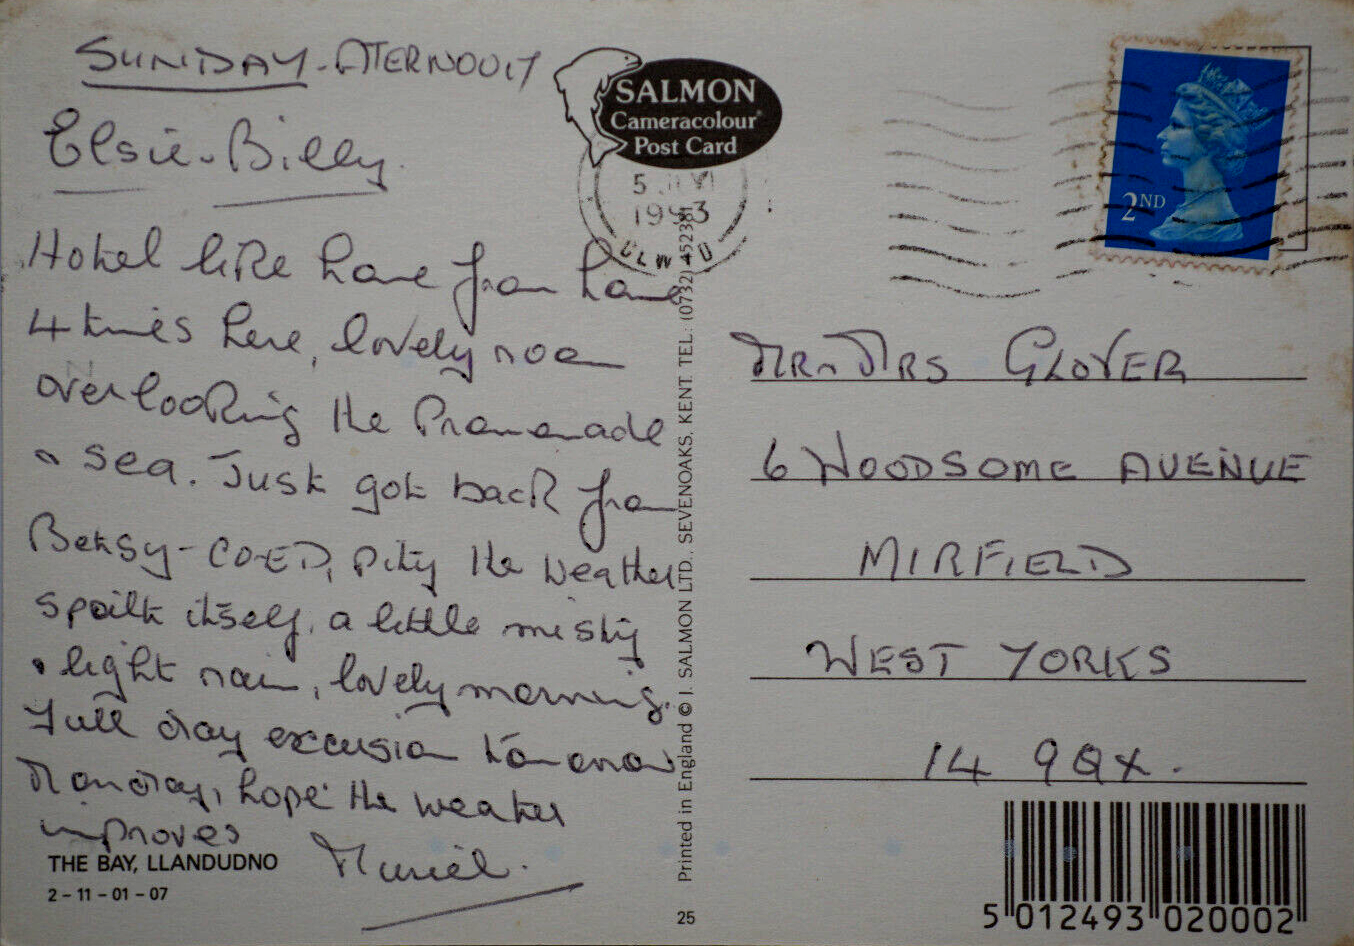 SUNDAY - ATERNOON
Elsie & Billy.
Hotel like home from home
4 times here, lovely room
overlooking the Promenade
& sea. Just got back from
Betsy-CO-ED, pity the weather
spoilt itself, a little misty
& light rain, lovely morning.
Full day excusion tomorrow
Monday, hope the weather
improves
Muriel.
THE BAY, LLANDUDNO
2 - 11 - 01 - 07
SALMON
Cameracolour®
Post Card
5
1993
CLWYD
2ND
Printed in England © J. SALMON LTD., SEVENOAKS, KENT. TEL: (0732) 452381
25
MR & MRS GLOVER
6 WOODSOME AVENUE
MIRFIELD
WEST YORKS
14 9QX.
5 012493 020002